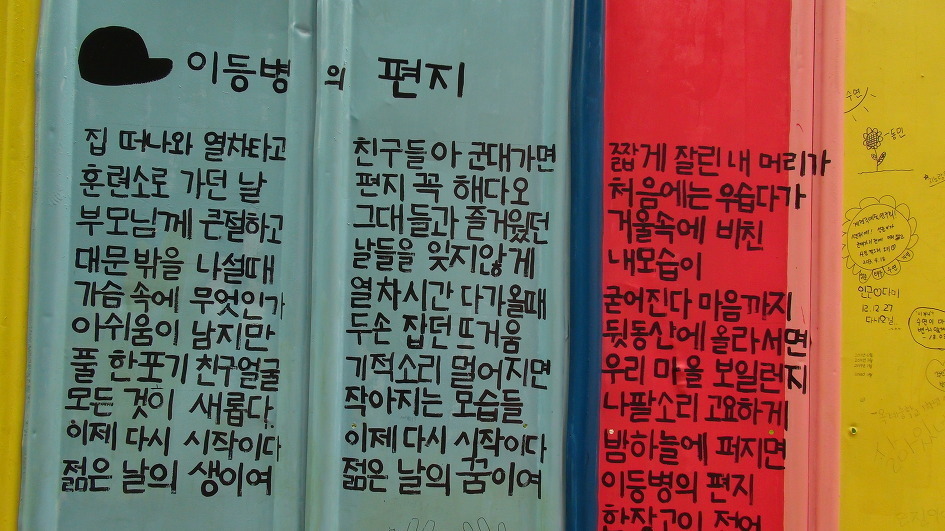 이등병의 편지
집 떠나와 열차타고
훈련소로 가던 날
부모님께 큰절하고
대문 밖을 나설때
가슴 속에 무엇인가
아쉬움이 남지만
풀 한포기 친구얼굴
모든 것이 새롭다
이제 다시 시작이다
젊은 날의 생이여
친구들아 군대가면
편지 꼭 해다오
그대들과 즐거웠던
날들을 잊지않게
열차시간 다가올때
두손 잡던 뜨거움
기적소리 멀어지면
작아지는 모습들
이제 다시 시작이다
젊은 날의 꿈이여
짧게 잘린 내 머리가
처음에는 우습다가
거울속에 비친
내모습이
굳어진다 마음까지
뒷동산에 올라서면
우리 마을 보일런지
나팔소리 고요하게
밤하늘에 퍼지면
이등병의 편지
한장고이 접어
수연
동민
12.12.27